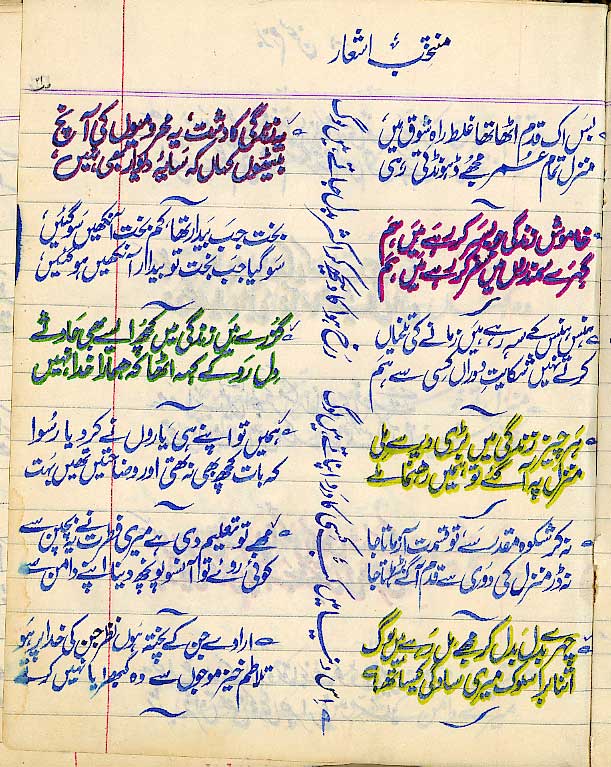 منتخب اشعار
بس اک قدم اٹھا تھا غلط راہ شوق میں
منزل تمام عمر مجھے ڈھونڈتی رہی
خاموش زندگی جو بسر کر رہے ہیں ہم
گہرے سمندروں میں سفر کر رہے ہیں ہم
ہنس ہنس کے سہہ رہے ہیں زمانے کی تلخیاں
کرتے نہیں شکایتِ دوراں کسی سے ہم
ہر چیز زندگی میں بڑی دیر سے ملی
منزل پہ آ گئے تو ہمیں رہنما ملے
نہ کر شکوہ مقدر سے تو قسمت آزماتا جا
نہ ڈر منزل کی دوری سے قدم آگے بڑھاتا جا
چہرے بدل بدل کر مجھے مل رہے ہیں لوگ
اتنا برا سلوک میری سادگی کیساتھ؟
اس دنیا میں کب کسی کا درد اپناتے ہیں لوگ
رخ ہوا کا دیکھ کر اکثر بدل جاتے ہیں لوگ
یہ زندگی کا دشت، یہ محرومیوں کی آنچ
بیٹھوں کہاں کہ سایۂ دیوار بھی نہیں
بخت جب بیدار تھا کم بخت آنکھیں سو گئیں
سو گیا جب بخت تو بیدار آنکھیں ہو گئیں
گزرے ہیں زندگی میں کچھ ایسے بھی حادثے
دل رو کے کہہ اٹھا کہ ہمارا خدا نہیں
ہمیں تو اپنے ہی یاروں نے کر دیا رسوا
کہ بات کچھ بھی نہ تھی اور وضاحتیں تھیں بہت
مجھے تو تعلیم دی ہے میری فطرت نے یہ بچپن سے
کوئی روئے تو آنسو پونچھ دینا اپنے دامن سے
ارادے جن کے پختہ ہوں نظر جن کی خدا پر ہو
تلاطم خیز موجوں سے وہ گھبرایا نہیں کرتے